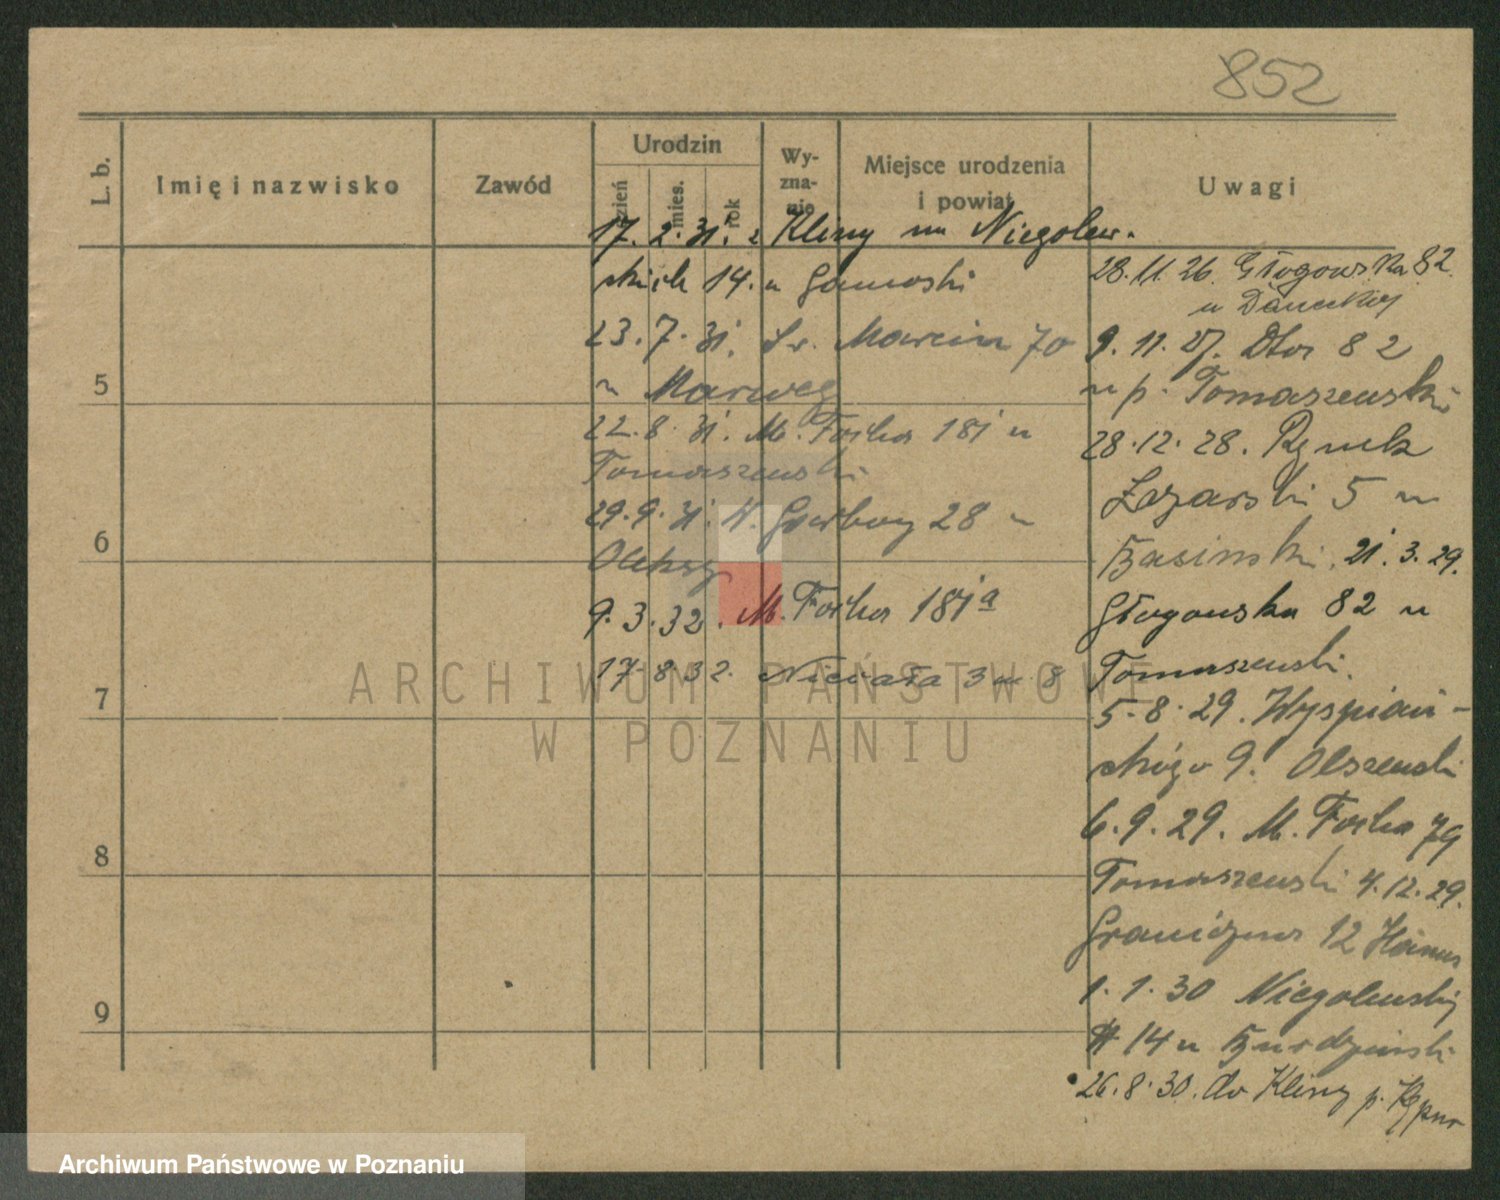 852
L. b.
Imię i nazwisko
Zawód
Urodzin
dzień
mies.
rok
Wy-
zna-
nie
Miejsce urodzenia
i powiat
Uwagi
28.11.26. Głogowska 82.
u
9.11.27. Dto 82
u p. Tomaszewski
28.12.28. Rynek
Łazarski 5 u
Basinski. 21.3.29.
Głogowska 82 u
Tomaszewski.
5.8.29. Wyspiań-
skiego 9. Olszewski
6.9.29. M. Focha 79
Tomaszewski 4.12.29.
Graniczna 12
1.1.30 Niegolewski
14 u Burdzinski
26.8.30. do Kliny p. Kępno
17.2.31. z Kliny na Niegolew-
skich 14. u
23.7.31. Św. Marcin 70
u Marweg
22.8.31. M. Focha 181 u
Tomaszewski
29.9.31. W. Garbary 28 u
9.3.32. M. Focha 181a
17.8.32. Niecała 3 m 8
5
6
7
8
9
ARCHIWUM PAŃSTWOWE
W POZNANIU
Archiwum Państwowe w Poznaniu